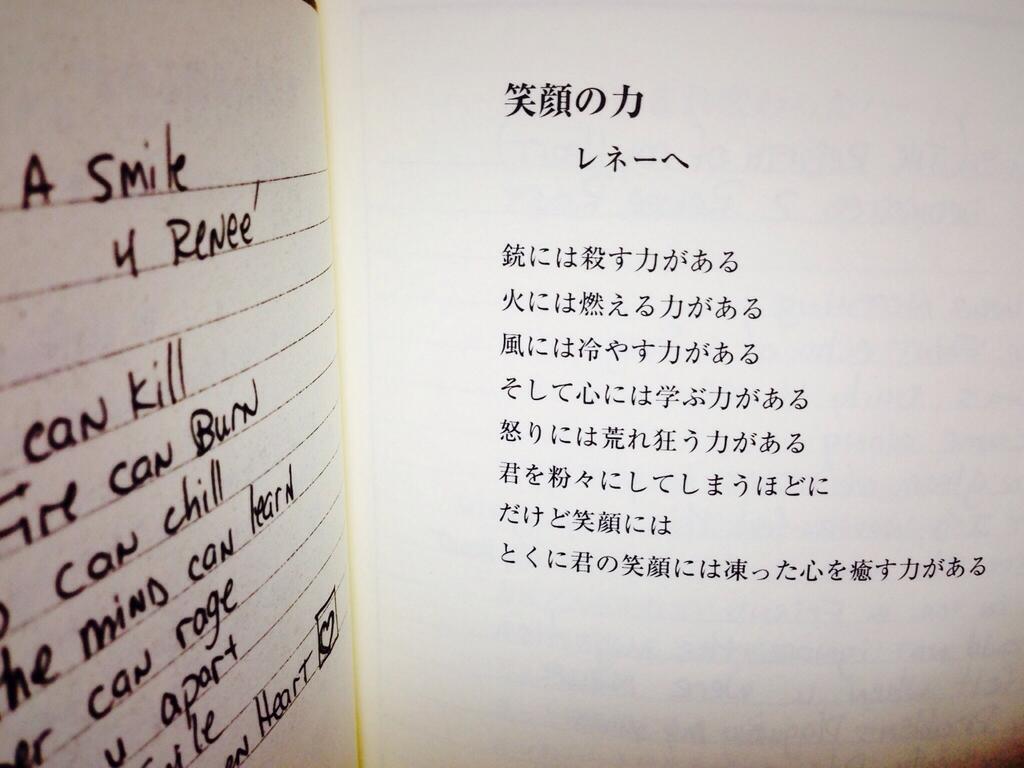 A Smile
4 Renee'
can kill
Fire can Burn
can chill
the mind can learn
can rage
u apart
Heart
笑顔の力
レネーへ
銃には殺す力がある
火には燃える力がある
風には冷やす力がある
そして心には学ぶ力がある
怒りには荒れ狂う力がある
君を粉々にしてしまうほどに
だけど笑顔には
とくに君の笑顔には凍った心を癒す力がある